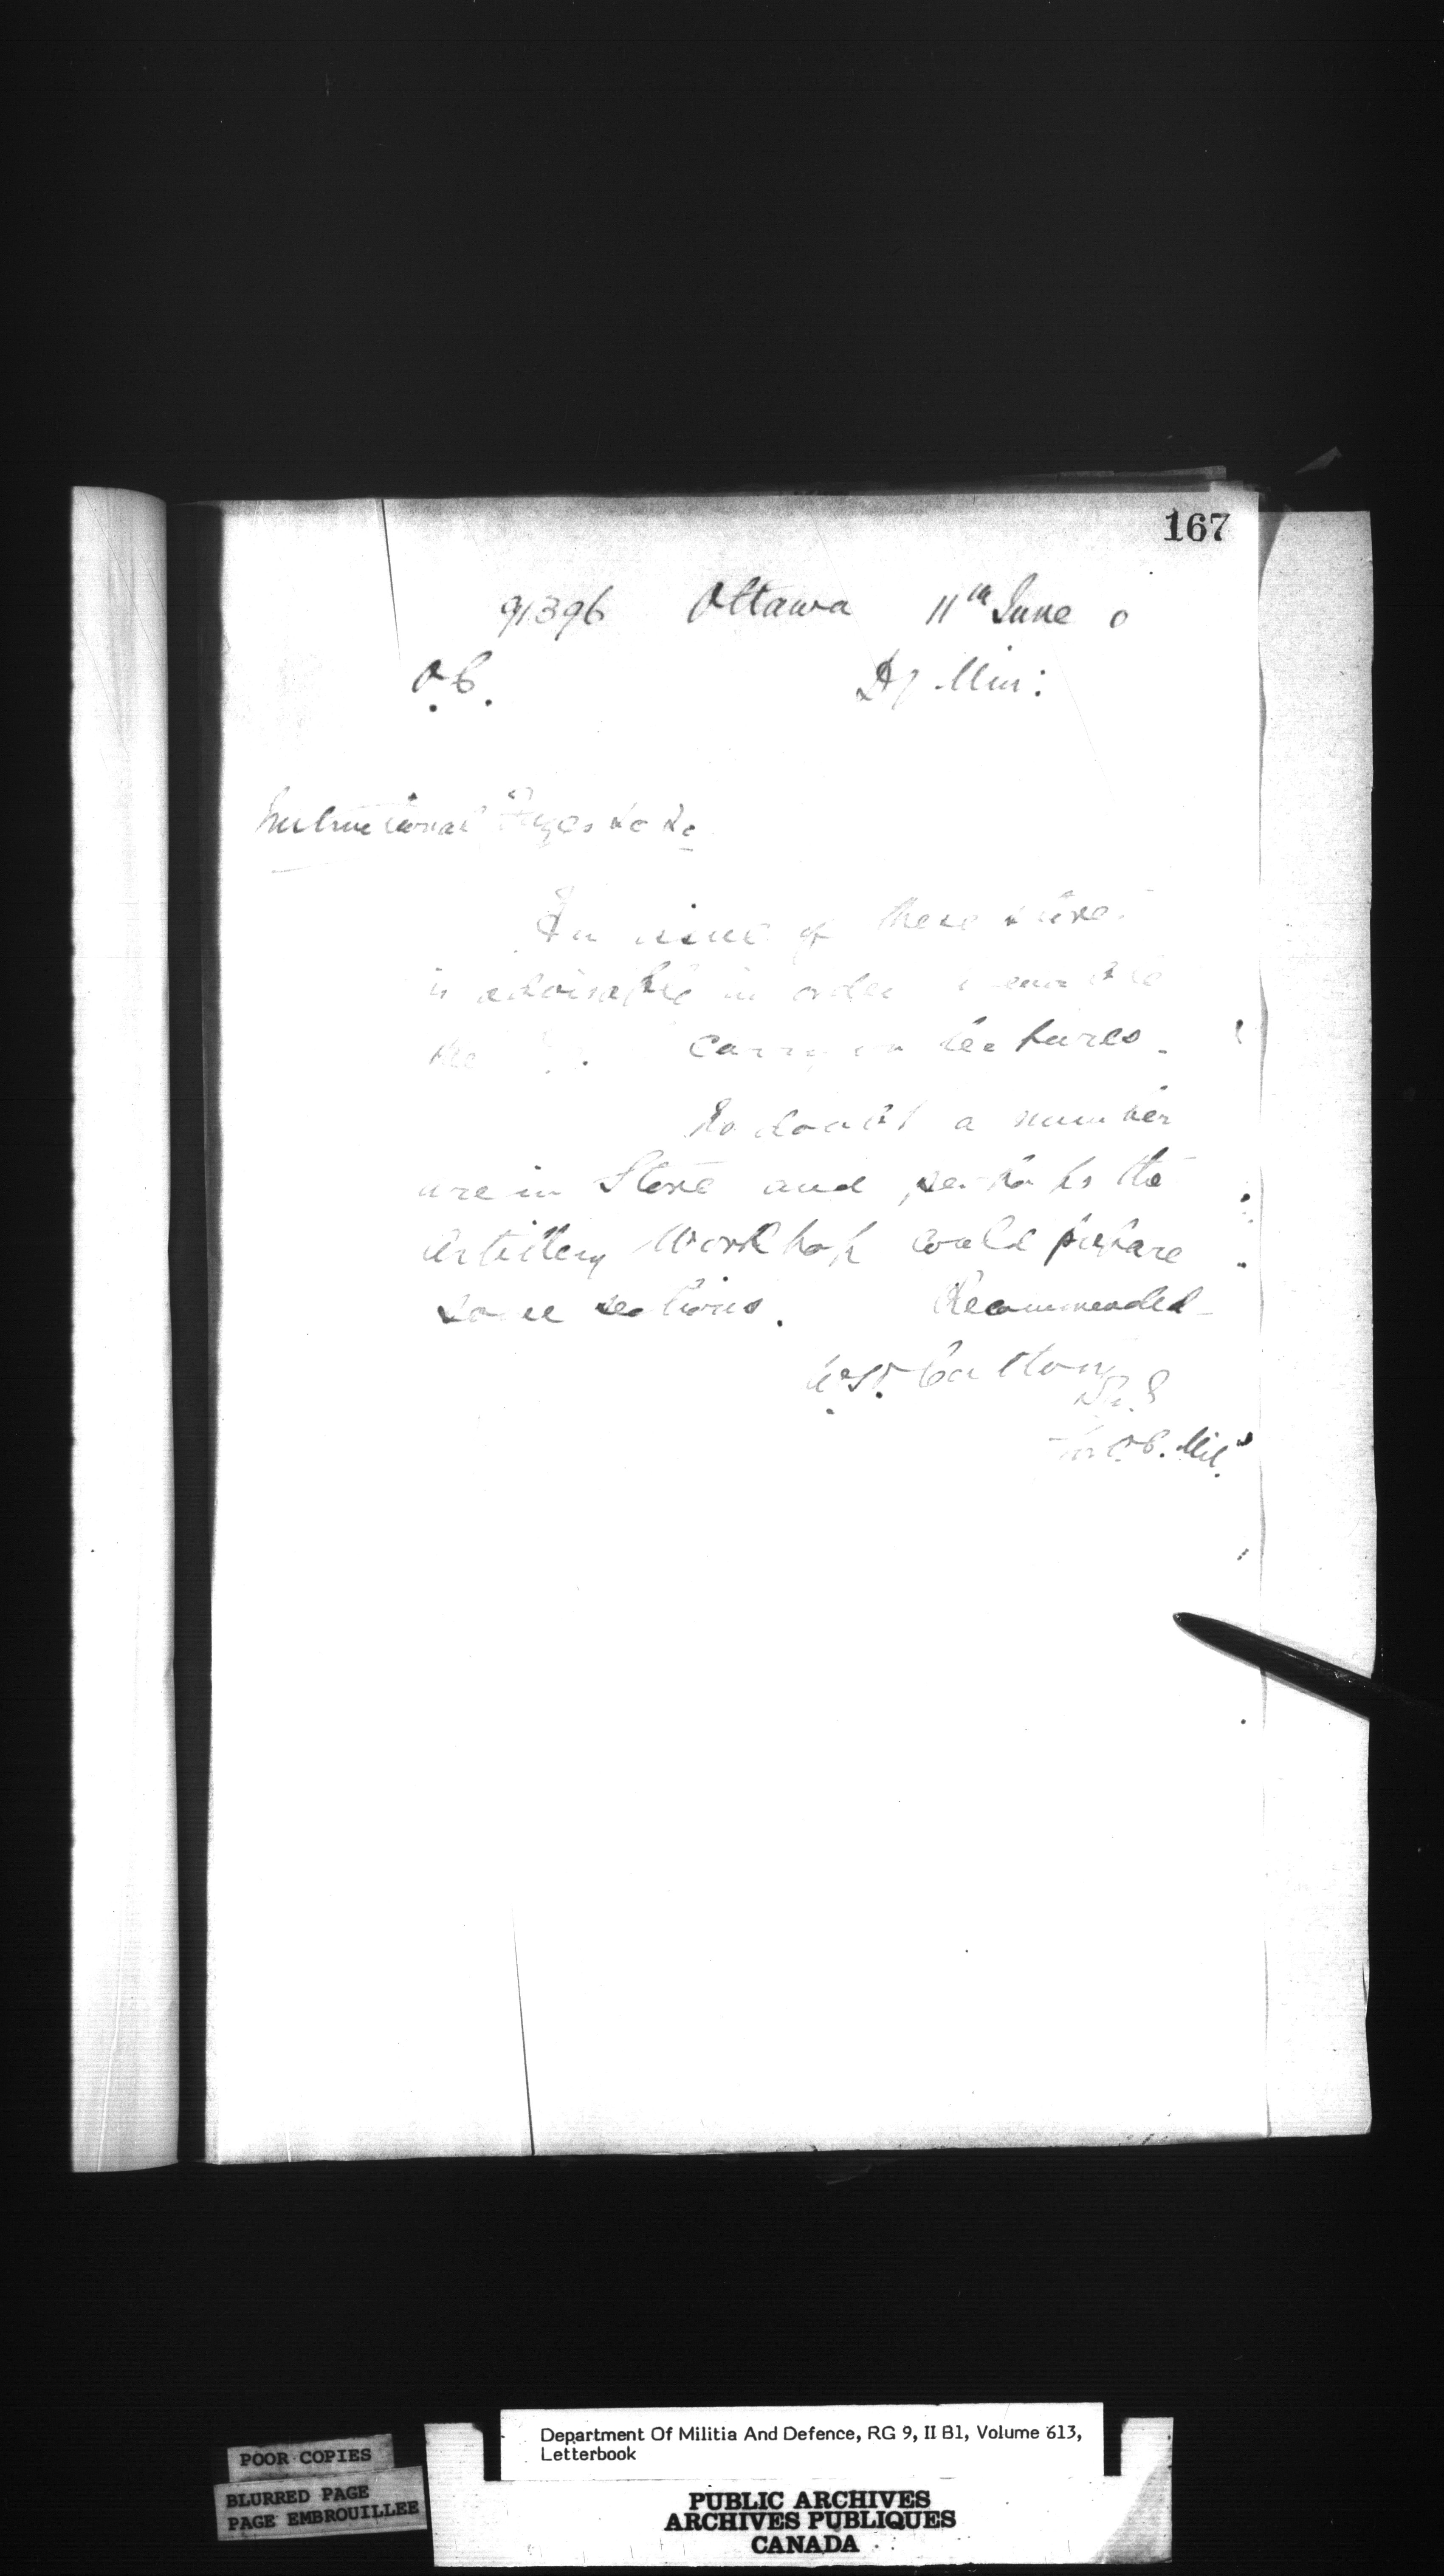 167
91396 Ottawa 11th June 0
Dy Min:
Instructional Fuzes &c &c
An issue of these stores
is advisable in order
the carry on lectures.
No doubt a number
are in Store and perhaps the
Artillery Workshop could prepare
some sections. Recommended
for Mil.
POOR COPIES
BLURRED PAGE
PAGE EMBROUILLEE
Department Of Militia And Defence, RG 9, II B1, Volume 613,
Letterbook
PUBLIC ARCHIVES
ARCHIVES PUBLIQUES
CANADA